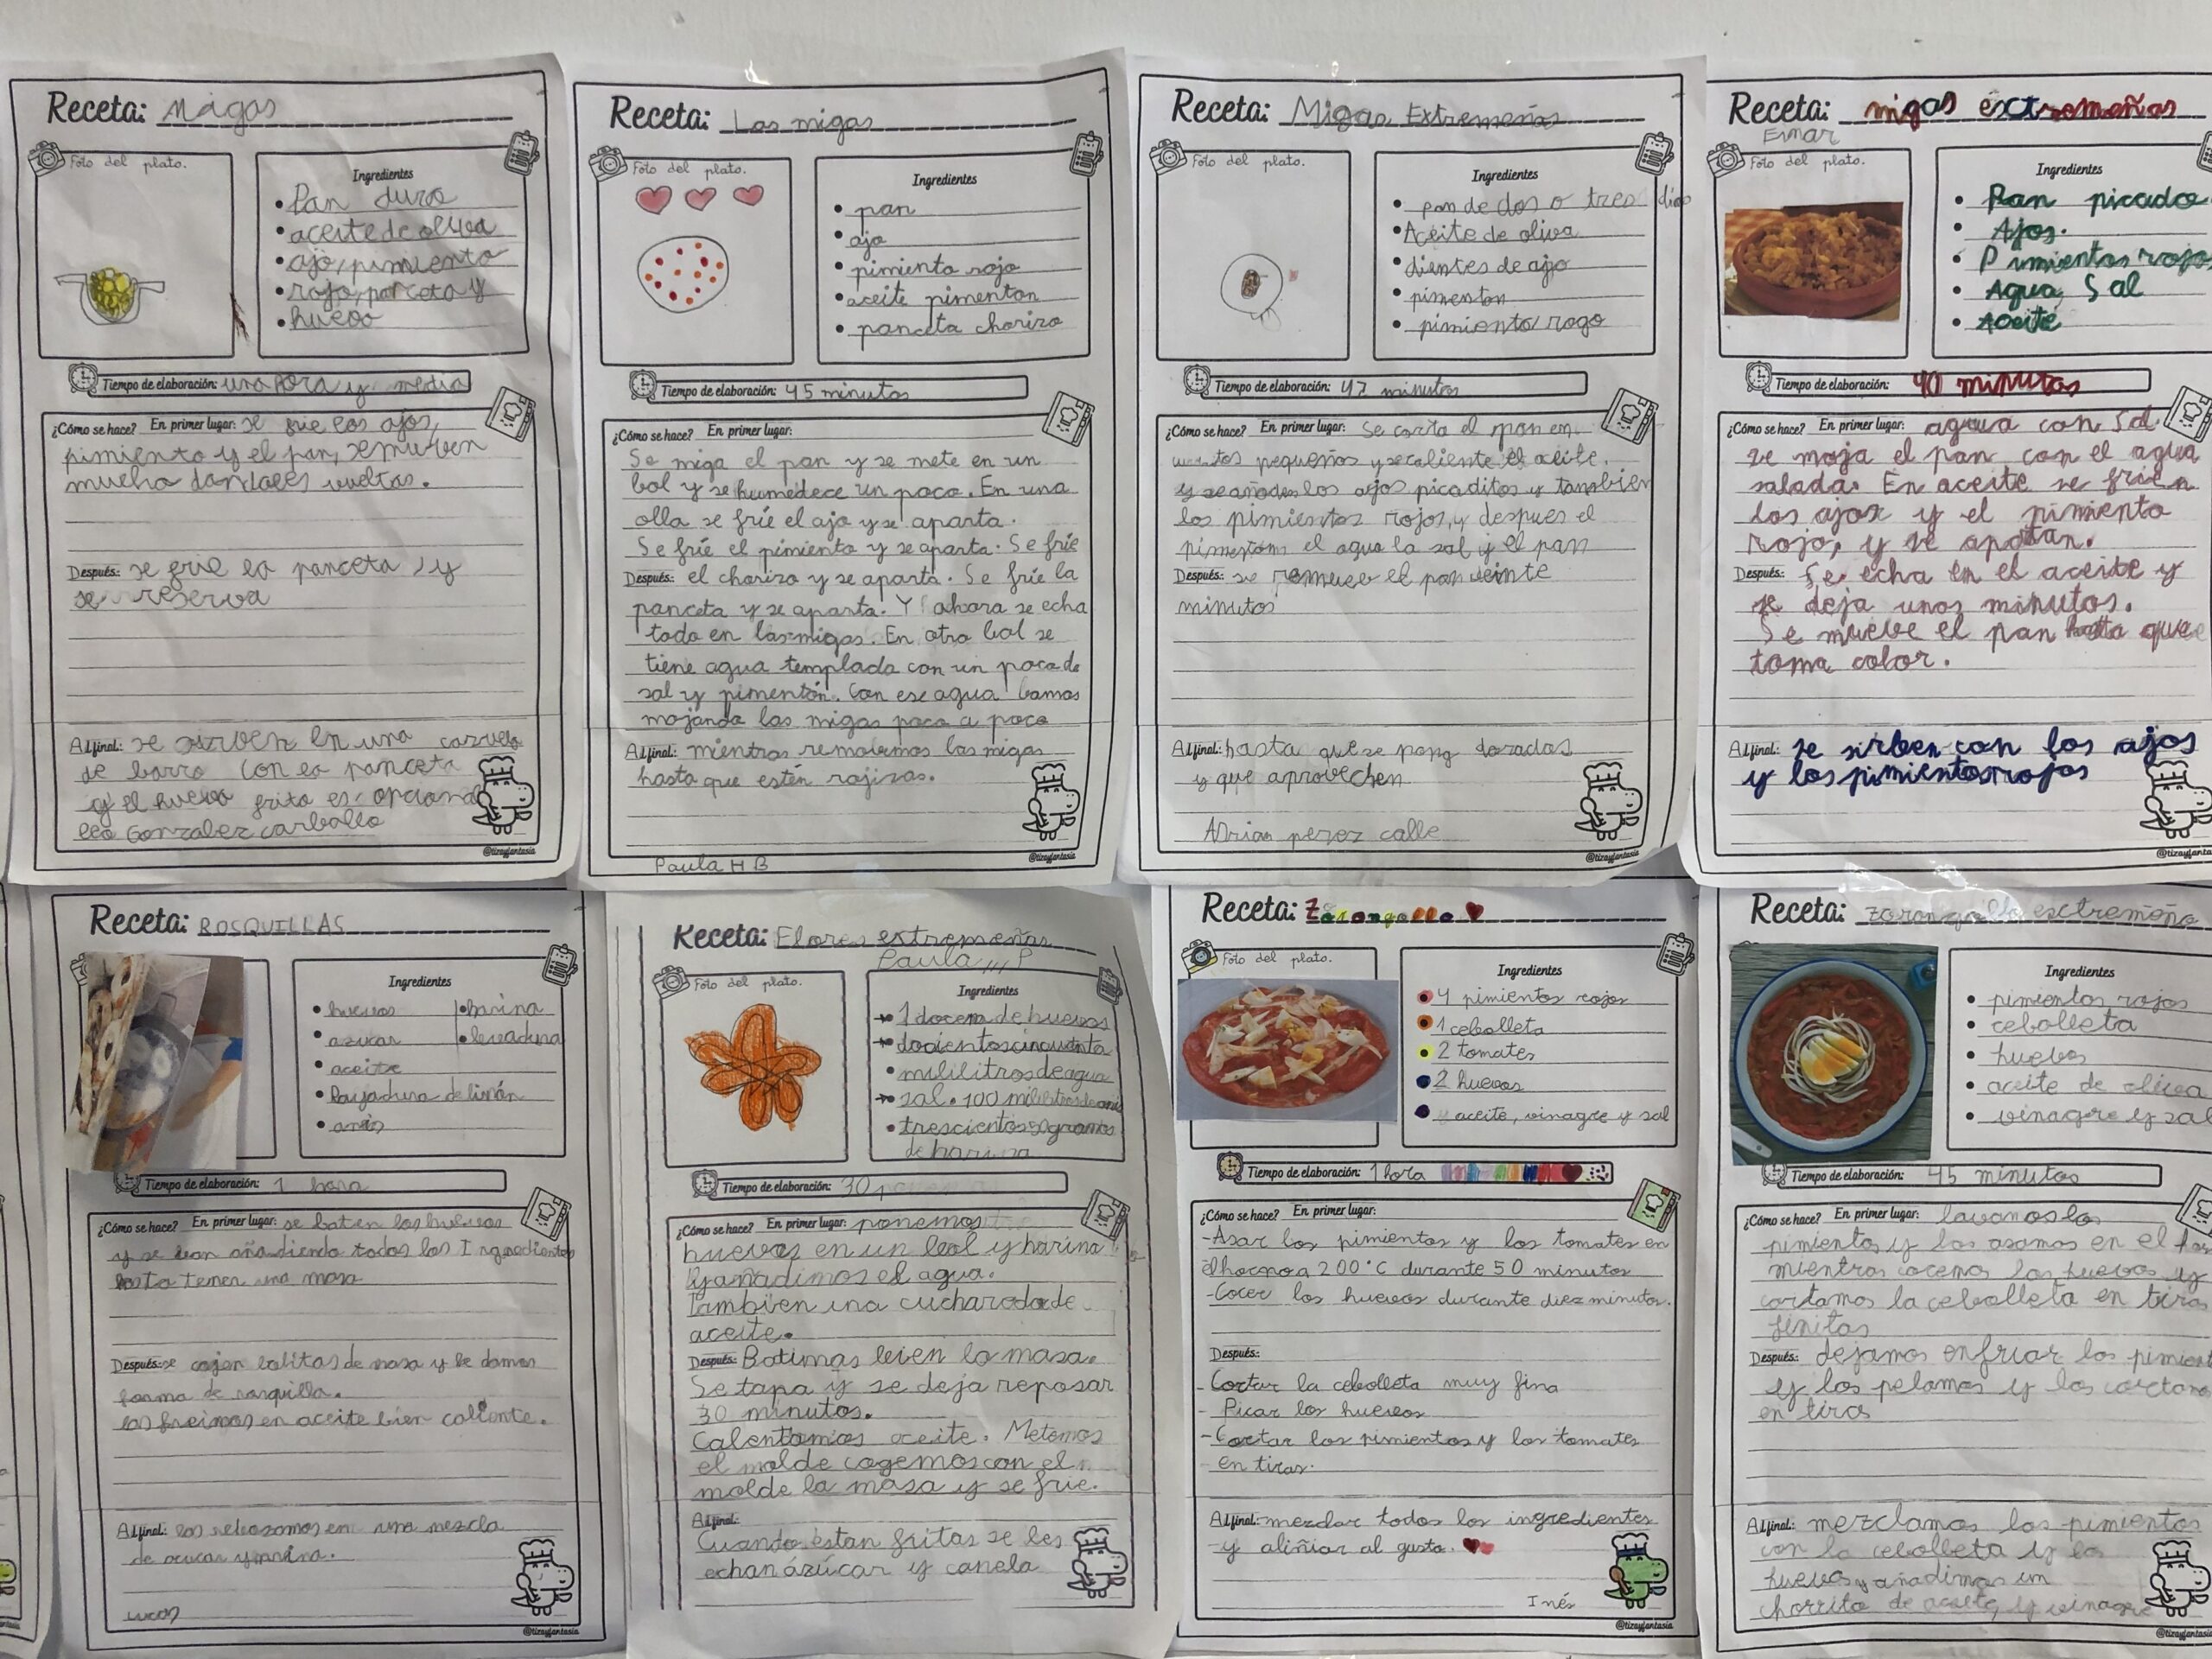 Receta: Migas
Foto del plato.
Ingredientes
Pan duro
aceite de oliva
ajo, pimiento
rojo, panceta y
huevo
Tiempo de elaboración: una hora y media
¿Cómo se hace? En primer lugar: se frie los ajos,
pimiento y el pan, se mueven
mucho dandoles vueltas.
Después: se frie la panceta, y
se reserva
Al final: se sirven en una cazuela
de barro con la panceta
y el huevo frito es opcional
Leo Gonzalez carballo
@tizayfantasia
Receta: Las migas
Foto del plato.
Ingredientes
pan
ajo
pimiento rojo
aceite pimenton
panceta chorizo
Tiempo de elaboración: 45 minutos
¿Cómo se hace? En primer lugar:
Se miga el pan y se mete en un
bol y se humedece un poco. En una
olla se fríe el ajo y se aparta.
Se fríe el pimiento y se aparta. Se fríe
Después: el chorizo y se aparta. Se fríe la
panceta y se aparta. Y ahora se echa
todo en las migas. En otro bol se
tiene agua templada con un poco de
sal y pimentón. Con ese agua bamos
mojando las migas poco a poco
Al final: mientras removemos las migas
hasta que estén rojizas.
@tizayfantasia
Paula H B
Receta: Migas Extremeñas
Foto del plato.
Ingredientes
pan de dos o tres dias
Aceite de oliva
dientes de ajo
pimenton
pimiento rogo
Tiempo de elaboración: 47 minutos
¿Cómo se hace? En primer lugar: Se corta el pan en
pequeños y se caliente el aceite.
y se añaden los ajos picaditos y tambien
los pimientos rojos, y despues el
pimenton el agua la sal y el pan
Después: se remueve el pan veinte
minutos
Al final: hasta que se pong doradas
y que aprovechen
Adrian perez calle
@tizayfantasia
Receta: migas extremeñas
Eimar
Foto del plato.
Ingredientes
Pan picado
Ajos.
Pimientos rojo
Agua, Sal
Aceite
Tiempo de elaboración: 90 minutos
¿Cómo se hace? En primer lugar: agua con Sal
se moja el pan con el agua
salada. En aceite se fríen
los ajos y el pimiento
rojo, y se apartan.
Después: Se echa en el aceite y
se deja unos minutos.
Se mueve el pan hasta que
toma color.
Al final: se sirben con los ajos
y los pimientos rojos
@tizayfantasia
Receta: ROSQUILLAS
Ingredientes
huevos
harina
azucar
levadura
aceite
Rayadura de limón
anís
Tiempo de elaboración: 1 hora
¿Cómo se hace? En primer lugar: se baten los huevos
y se ban añadiendo todos los Ingredientes
hasta tener una masa
Después: se cojen bolitas de masa y le damos
forma de rosquilla.
las freimos en aceite bien caliente.
Al final: las rebozamos en una mezcla
de azucar y
Lucas
@tizayfantasia
Receta: Flores extremeñas
Paula P
Foto del plato.
Ingredientes
1 docena de huevos
docientos cincuenta
mililitros de agua
sal. 100 mililitros de anis
trescientos 50 gramos
de harina
Tiempo de elaboración: 30
¿Cómo se hace? En primer lugar: ponemos
huevos en un bol y harina
y añadimos el agua.
También una cucharada de
aceite.
Después: Batimas bien la masa.
Se tapa y se deja reposar
30 minutos.
Calentamos aceite. Metemos
el molde cogemos con el
molde la masa y se fríe.
Al final:
Cuando estan fritas se les
echan ázúcar y canela
Receta: Zarangollo
Foto del plato.
Ingredientes
4 pimientos rojos
1 cebolleta
2 tomates
2 huevos
aceite, vinagre y sal
Tiempo de elaboración: 1 hora
¿Cómo se hace? En primer lugar:
-Asar los pimientos y los tomates en
el horno a 200°C durante 50 minutos
-Cocer los huevos durante diez minutos.
Después:
- Cortar la cebolleta muy fina
- Picar los huevos
- Cortar los pimientos y los tomates
en tiras.
Al final: mezclar todos los ingredientes
- y aliñiar al gusto.
Inés
@tizayfantasia
Receta: Zarangollo extremeño
Ingredientes
pimientos rojos
cebolleta
huevos
aceite de oliva
vinagre y sal
Tiempo de elaboración: 45 minutos
¿Cómo se hace? En primer lugar: lavamos los
pimientos y los asamos en el
mientras cocemos los huevos y
cortamos la cebolleta en tiras
finitas
Después: dejamos enfriar los pimient
y los pelamos y los cortamo
en tiras
Al final: mezclamos los pimientos
con la cebolleta y los
huevos y añadimos un
chorrito de aceite, y vinagre
@tizayfantasia